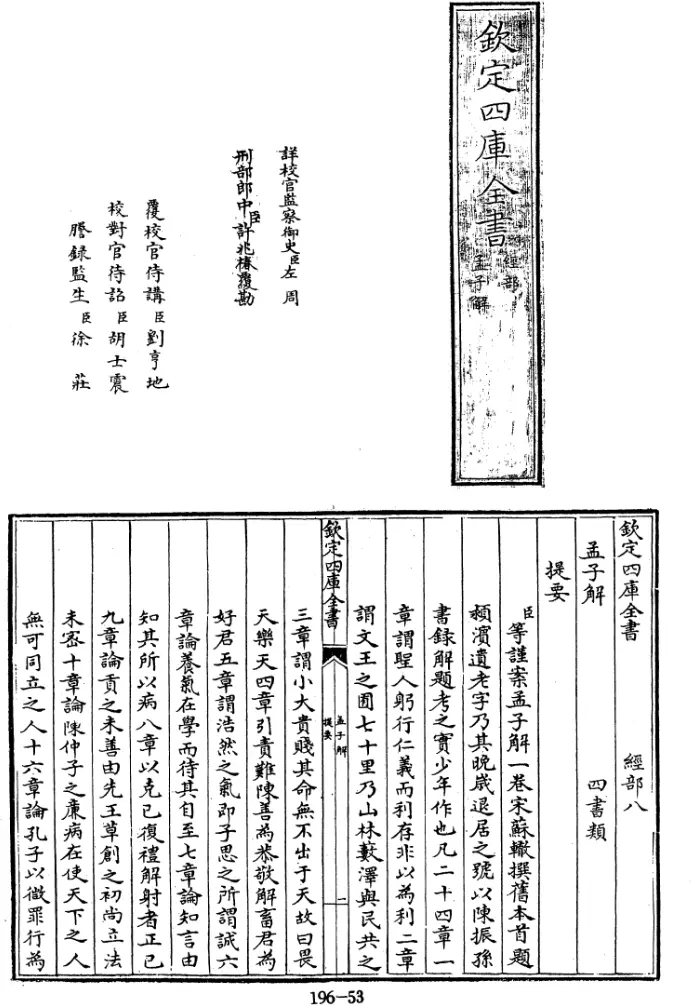 欽定四庫全書
經部
孟子解
詳校官監察御史臣左周
刑部郎中臣許兆椿覆勘
覆校官侍講臣劉亨地
校對官待詔臣胡士震
謄錄監生臣徐莊
欽定四庫全書 經部八
孟子解 四書類
提要
臣等謹案孟子解一卷宋蘇轍撰舊本首題
潁濱遺老字乃其晚歲退居之號以陳振孫
書錄解題考之實少年作也凡二十四章一
章謂聖人躬行仁義而利存非以為利二章
謂文王之囿七十里乃山林藪澤與民共之
欽定四庫全書
孟子解
提要
一
三章謂小大貴賤其命無不出于天故曰畏
天樂天四章引責難陳善為恭敬解畜君為
好君五章謂浩然之氣即子思之所謂誠六
章論養氣在學而待其自至七章論知言由
知其所以病八章以克已復禮解射者正已
九章論貢之未善由先王草創之初尚立法
未宻十章論陳仲子之廉病在使天下之人
無可同立之人十六章論孔子以微罪行為
196-53